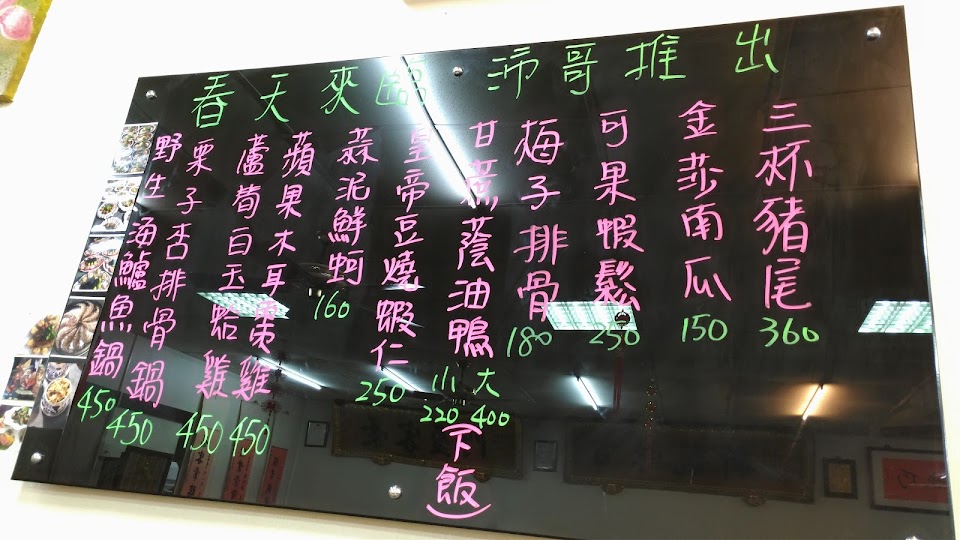 春天來臨 沛哥推出
三杯豬尾 360
金莎南瓜 150
可果蝦鬆 250
梅子排骨 180
甘蔗蔭油鴨 大 400 小 220 (下飯)
皇帝豆燒蝦仁 250
蒜泥鮮蚵 160
蘋果木耳棗雞 450
蘆筍白玉蛤雞 450
栗子杏排骨鍋 450
野生海鱸魚鍋 450